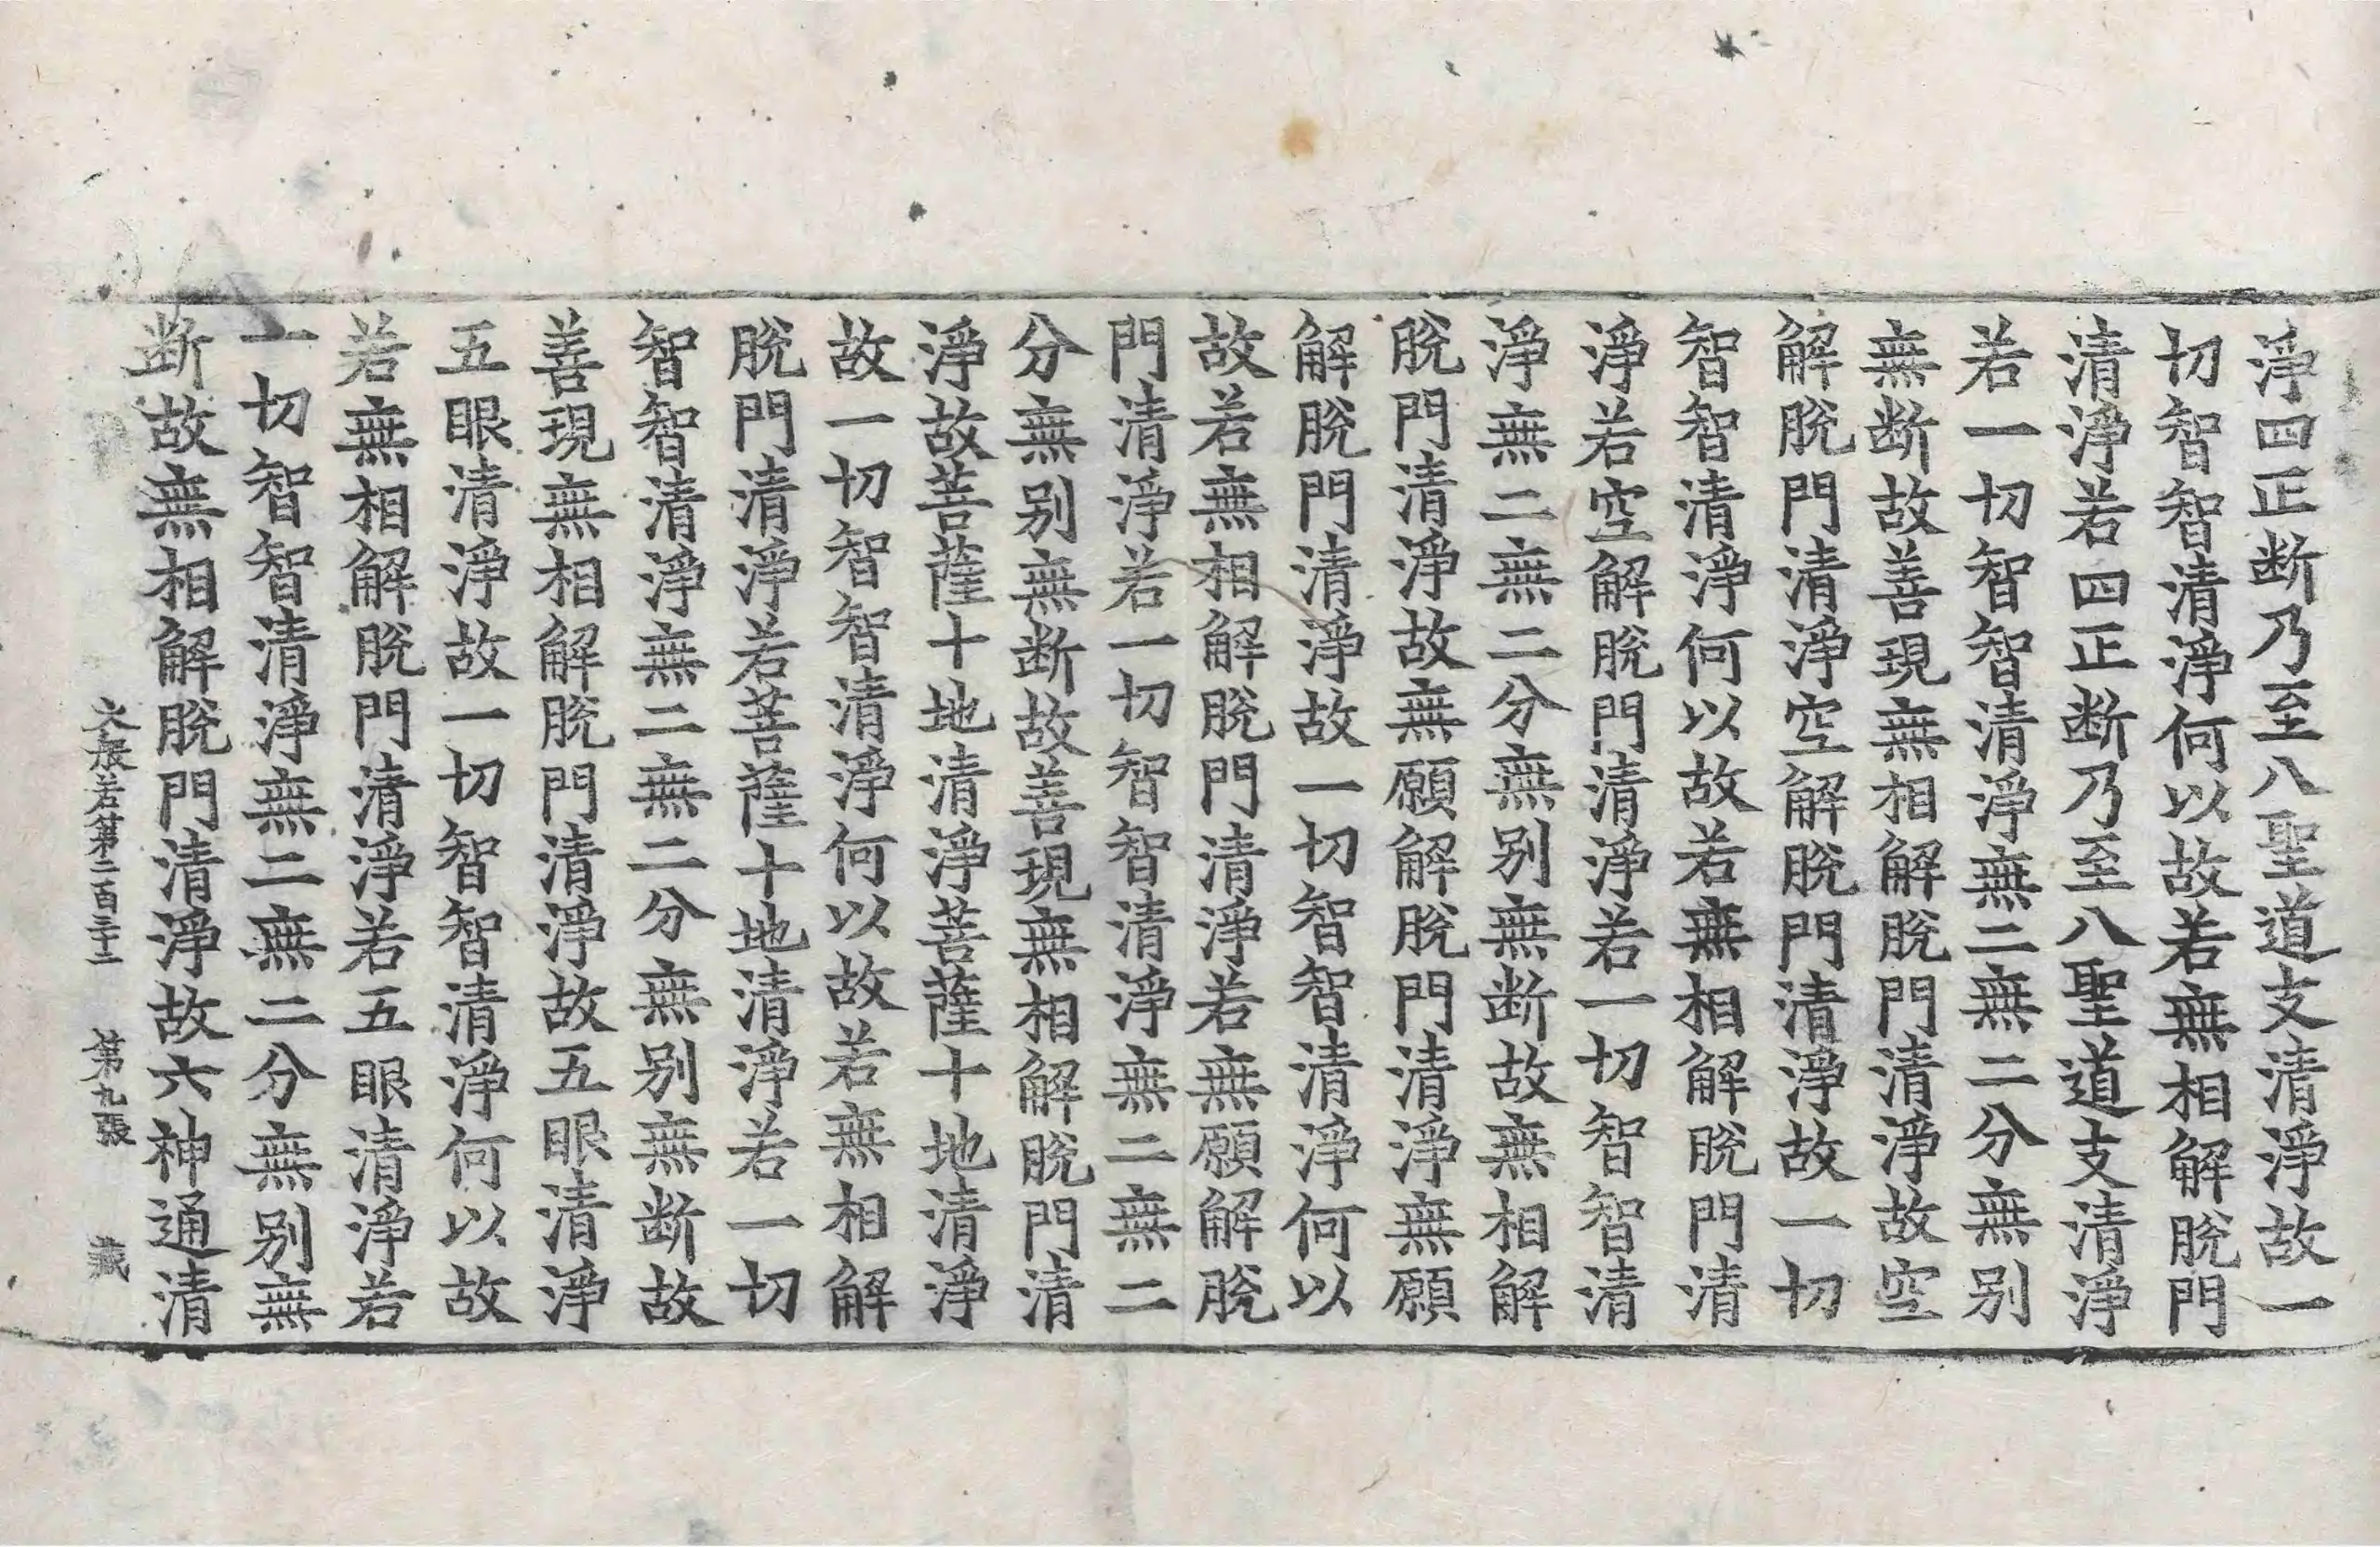 淨四正断乃至八聖道支清淨故一
切智智清淨何以故若無相解脫門
清淨若四正断乃至八聖道支清淨
若一切智智清淨無二無二分無别
無断故善現無相解脫門清淨故空
解脫門清淨空解脫門清淨故一切
智智清淨何以故若無相解脫門清
淨若空解脫門清淨若一切智智清
淨無二無二分無别無断故無相解
脫門清淨故無願解脫門清淨無願
解脫門清淨故一切智智清淨何以
故若無相解脫門清淨若無願解脫
門清淨若一切智智清淨無二無二
分無别無断故善現無相解脫門清
淨故菩薩十地清淨菩薩十地清淨
故一切智智清淨何以故若無相解
脫門清淨若菩薩十地清淨若一切
智智清淨無二無二分無别無断故
善現無相解脫門清淨故五眼清淨
五眼清淨故一切智智清淨何以故
若無相解脫門清淨若五眼清淨若
一切智智清淨無二無二分無别無
断故無相解脫門清淨故六神通清
大般若第二百三十二 第九張 藏